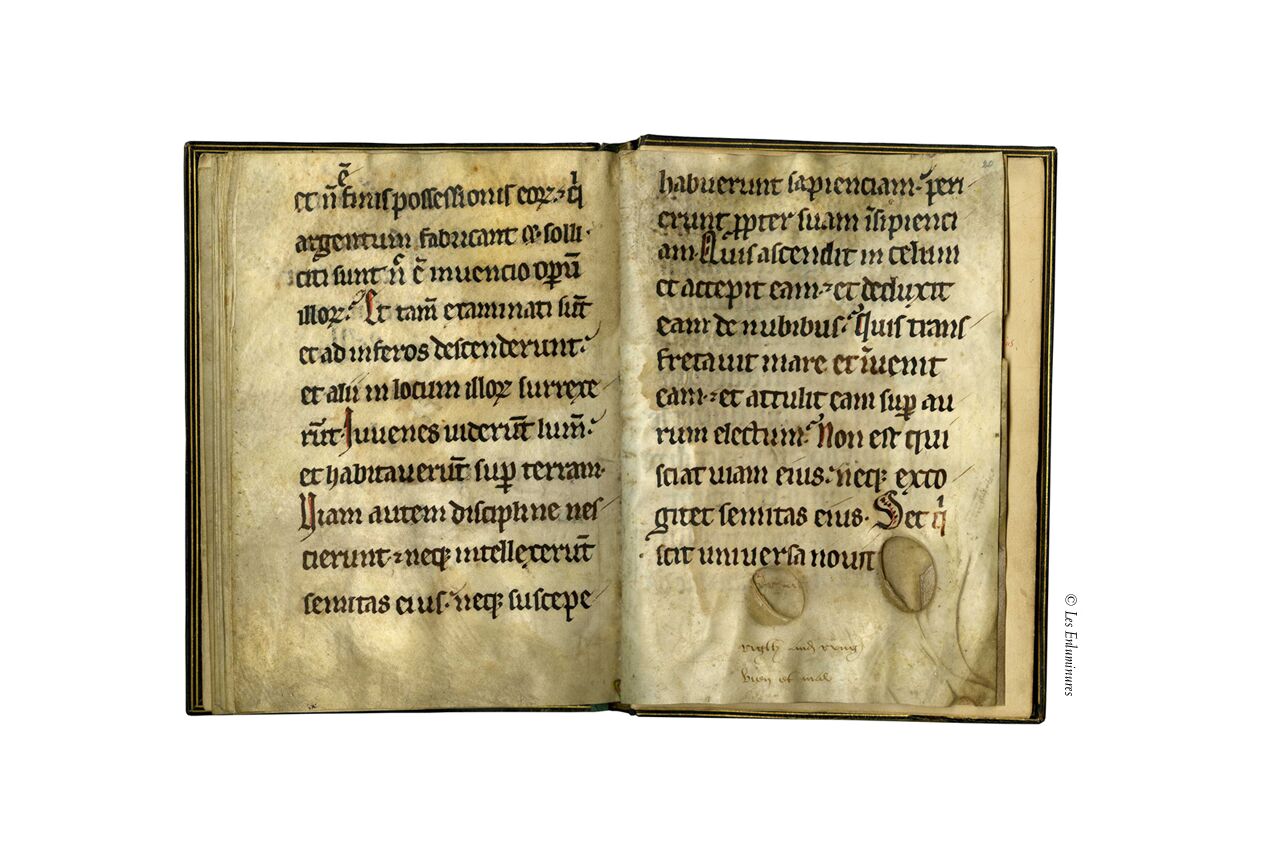 et ñ ẽ finis possessionis eoꝝ. qͥ
argentum fabricant ⁊ solli
citi sunt ñ ẽ inuencio oꝑũ
illoꝝ. Et tam̃ exterminati sũt
et ad inferos descenderunt.
et alii in locum illoꝝ surrexe
rũt. Iuuenes uiderũt lum̃.
et habitauerũt suꝑ terram.
Uiam autem discipline nes
cierunt ⁊ neqꝫ intellexerũt
semitas eius. neqꝫ suscepe
20
habuerunt sapienciam. peri
erunt ꝓpter suam ĩsipienci
am. Quis ascendit in celum
et accepit eam. et deduxit
eam de nubibus. Quis trans
fretauit mare et ĩuenit
eam. et attulit eam suꝑ au
rum electum. Non est qui
sciat uiam eius. neqꝫ exco
gitet semitas eius. Set qͥ
scit uniuersa nouit
rigth and rong
bien et mal
© Les Enluminures